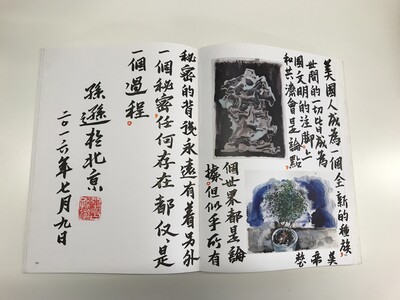 美國人成為一個全新的種族
世間的一切皆成為美
國文明的注腳上帝
和共濟會是論點整
個世界都是論
據但似乎所有
秘密的背後永遠有着另外
一個秘密任何存在都仅、是
一個過程
孫遜於北京
二〇一六年七月九日